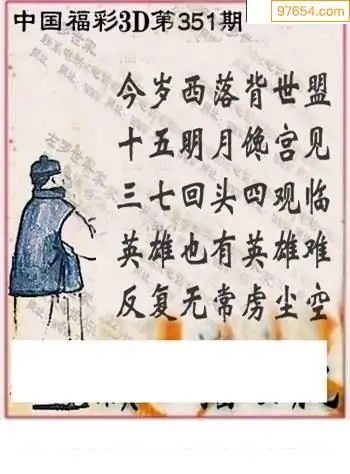 97654.com
中国福彩3D第351期
今岁西落背世盟
十五明月馋宫见
三七回头四观临
英雄也有英雄难
反复无常虏尘空